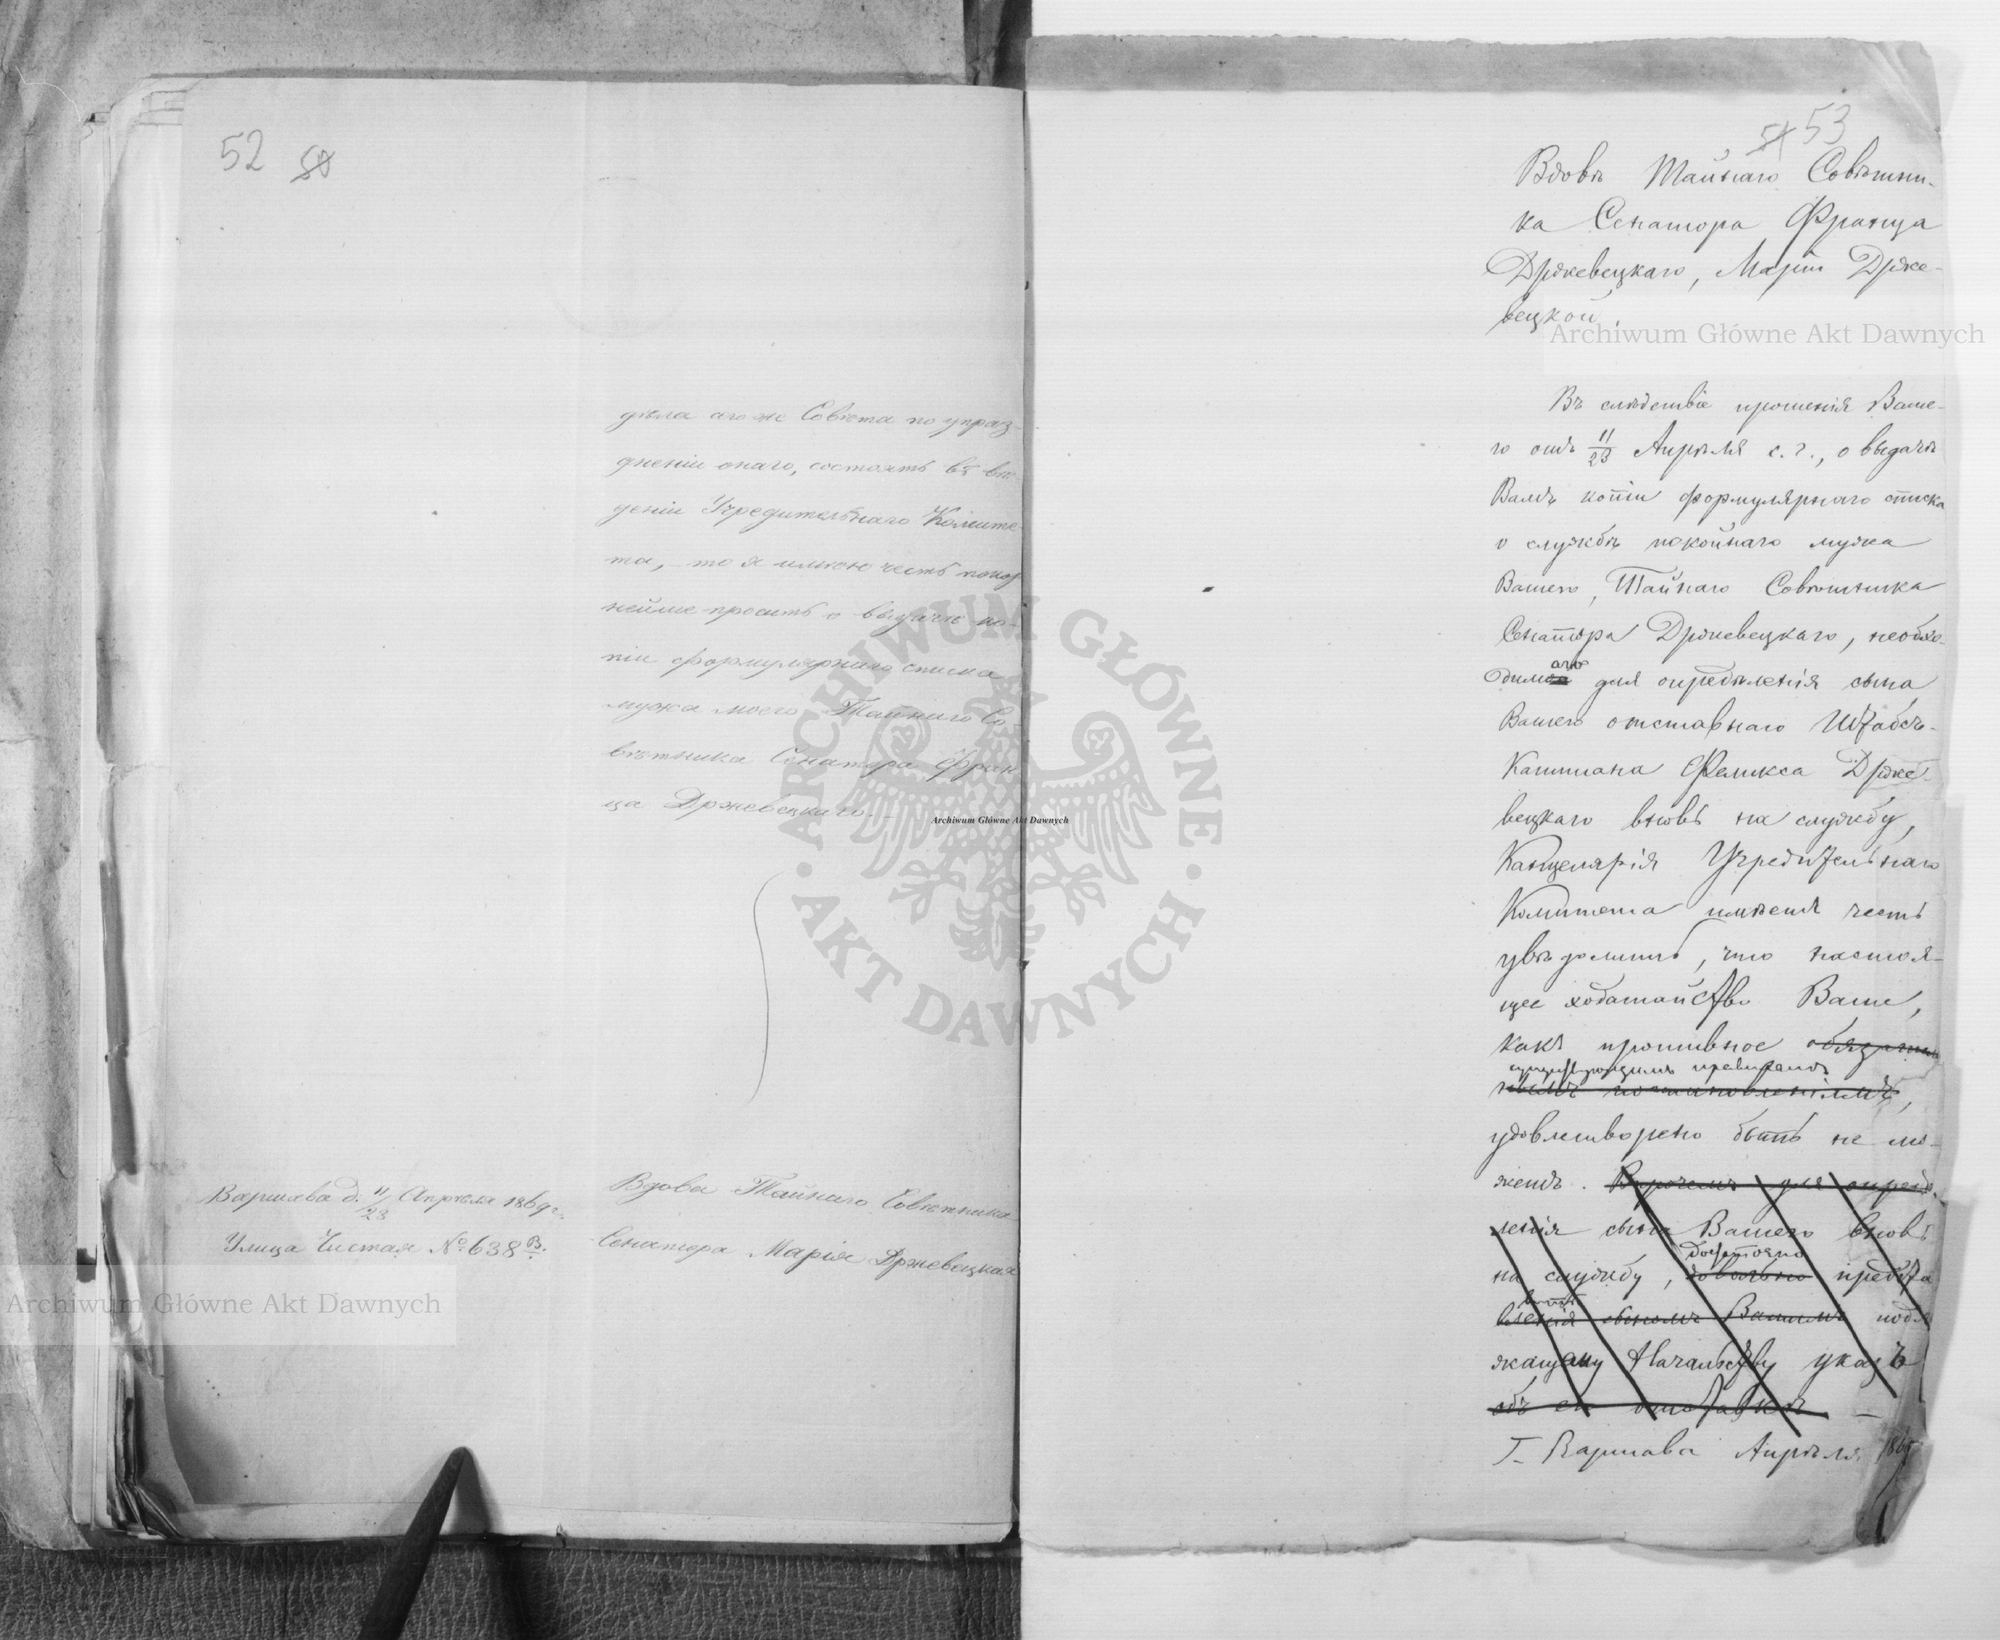 52 50
дѣла того же Совѣта по упраз-
дненіи онаго, состоятъ въ вѣ-
деніи Учредительнаго Комите-
та, то я имѣю честь покор-
нейше просить о выдаче ко-
піи формулярнаго списка
мужа моего Тайнаго Со-
вѣтника Сенатора Фран-
ца Држевецкаго.
Варшава д. 11/23 Апрѣля 1869 г.
Улица Чистая № 638 В.
Вдова Тайнаго Совѣтника
Сенатора Марія Држевецкая
Archiwum Główne Akt Dawnych
51 53
Вдовѣ Тайнаго Совѣтни-
ка Сенатора Франца
Држевецкаго, Маріи Држе-
вецкой.
Archiwum Główne Akt Dawnych
Въ слѣдствіе прошенія Ваше-
го отъ 11/23 Апрѣля с. г., о выдачѣ
Вамъ копіи формулярнаго списка
о службѣ покойнаго мужа
Вашего, Тайнаго Совѣтника
Сенатора Држевецкаго, необхо-
димаго для опредѣленія сына
Вашего отставнаго Штабсъ-
Капитана Феликса Држе-
вецкаго вновь на службу,
Канцелярія Учредительнаго
Комитета имѣетъ честь
увѣдомить, что настоя-
щее ходатайство Ваше,
какъ противное обязатель-
существующимъ правиламъ
нымъ постановленіямъ,
удовлетворено быть не мо-
жетъ. Впрочемъ для опредѣ-
ленія сына Вашего вновь
достаточно
на службу, довольно предста
вить
вленія сыномъ Вашимъ подл
жащему Начальству указъ
объ его отставкѣ. —
Г. Варшава Апрѣля 1869
ARCHIWUM GŁÓWNE · AKT DAWNYCH ·
Archiwum Główne Akt Dawnych